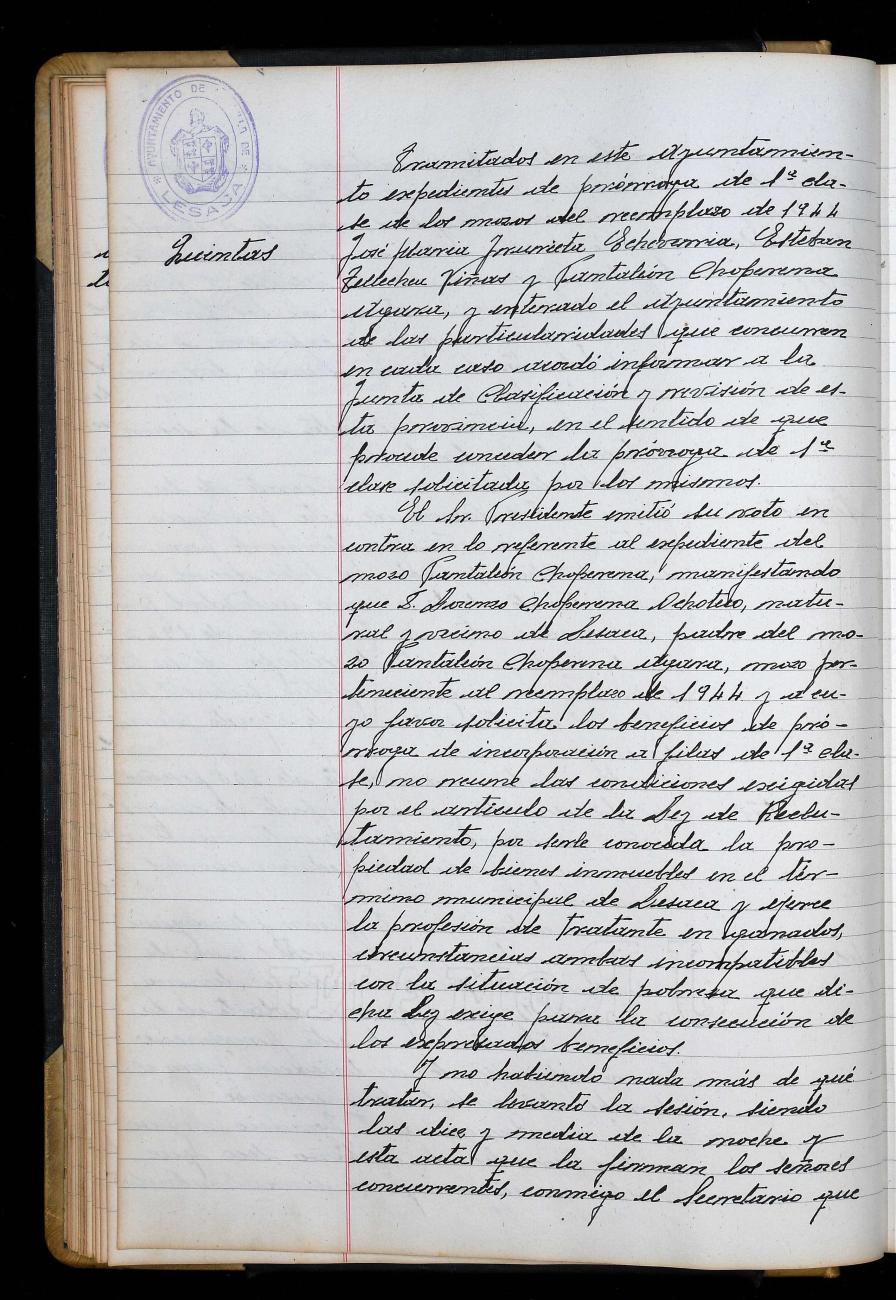 AYUNTAMIENTO DE LA VILLA DE
LESACA
Quintas
Tramitados en este Ayuntamien-
to expedientes de prórroga de 1ª cla-
se de los mozos del reemplazo de 1944
José Maria Irurieta Echeverria, Esteban
Tellechea Viñas y Pantaleón Choperena
Agara, y enterado el Ayuntamiento
de las particularidades que concurren
en cada caso acordó informar a la
Junta de Clasificación y revisión de es-
ta provincia, en el sentido de que
procede conceder la prórroga de 1ª
clase solicitada por los mismos.
El Sr. Presidente emitió su voto en
contra en lo referente al expediente del
mozo Pantaleón Choperena, manifestando
que D. Lorenzo Choperena Ochoteco, natu-
ral y vecino de Lesaca, padre del mo-
zo Pantaleón Choperena Agara, mozo per-
teneciente al reemplazo de 1944 y a cu-
yo favor solicita los beneficios de pró-
rroga de incorporación a filas de 1ª cla-
se, no reune las condiciones exigidas
por el artículo de la Ley de Reclu-
tamiento, por serle conocida la pro-
piedad de bienes inmuebles en el tér-
mino municipal de Lesaca y ejerce
la profesión de tratante en ganados,
circunstancias ambas incompatibles
con la situación de pobreza que di-
cha Ley exige para la consecución de
los expresados beneficios.
Y no habiendo nada más de qué
tratar, se levanto la sesión, siendo
las diez y media de la noche y
esta acta que la firman los señores
concurrentes, conmigo el Secretario que